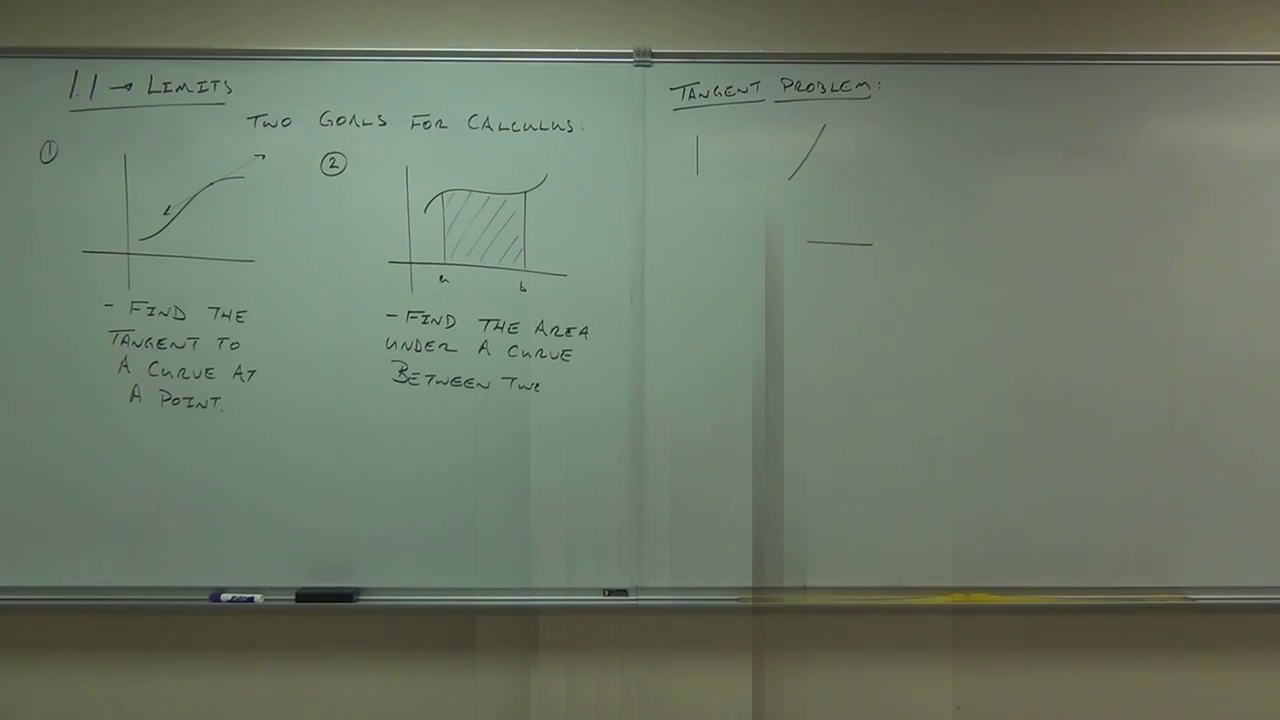 1.1 → LIMITS
TWO GOALS FOR CALCULUS:
①
②
a
b
- FIND THE
TANGENT TO
A CURVE AT
A POINT.
- FIND THE AREA
UNDER A CURVE
BETWEEN TWO
TANGENT PROBLEM: